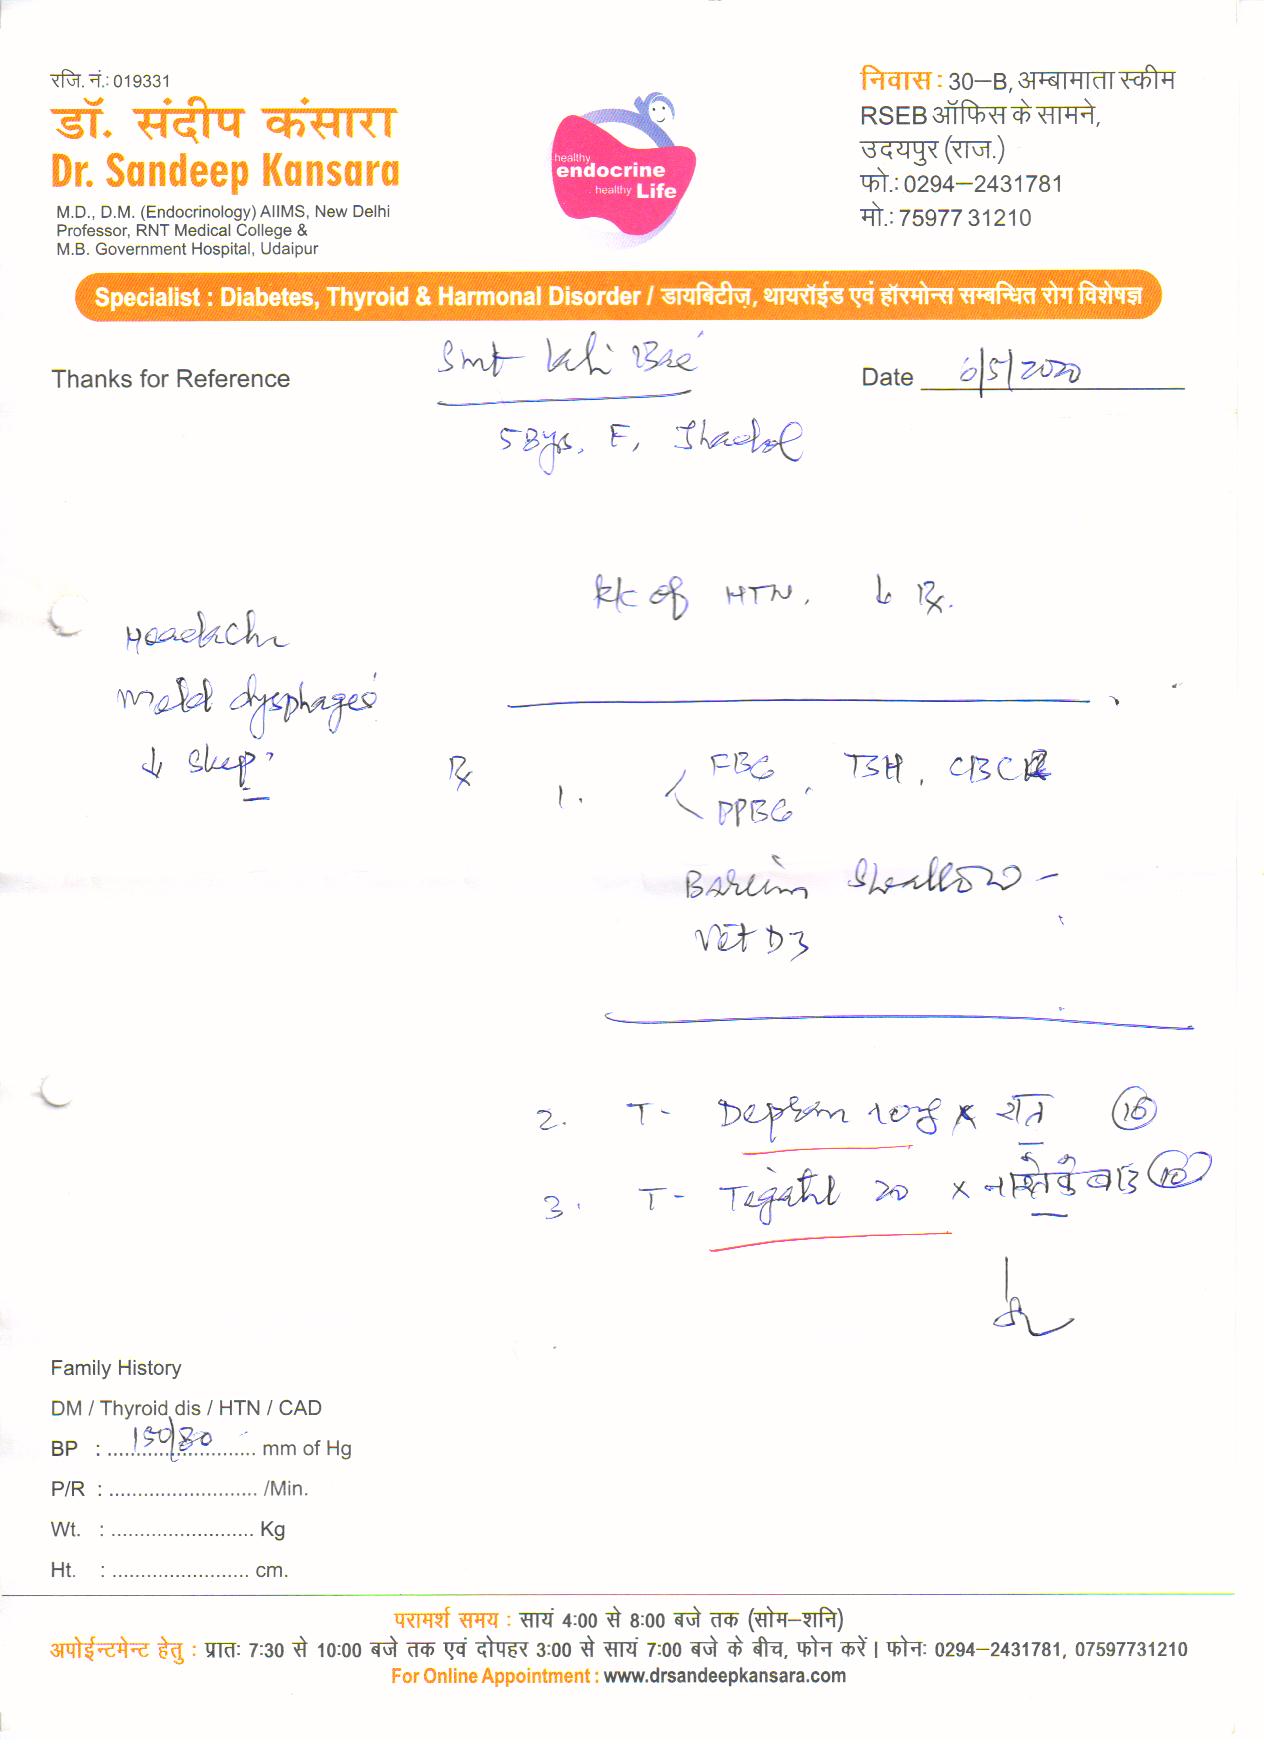 रजि. नं.: 019331
डॉ. संदीप कंसारा
Dr. Sandeep Kansara
M.D., D.M. (Endocrinology) AIIMS, New Delhi
Professor, RNT Medical College &
M.B. Government Hospital, Udaipur
healthy
endocrine
healthy Life
निवास : 30–B, अम्बामाता स्कीम
RSEB ऑफिस के सामने,
उदयपुर (राज.)
फो.: 0294–2431781
मो.: 75977 31210
Specialist : Diabetes, Thyroid & Harmonal Disorder / डायबिटीज़, थायरॉईड एवं हॉरमोन्स सम्बन्धित रोग विशेषज्ञ
Thanks for Reference
Smt
Date 6/5/2020
58ys, F, Jhadol
k/c of HTN, ↓ Rx.
Headache
mild dysphagia
↓ sleep
Rx
1. FBG TSH, CBC
PPBG
Barium Swallow -
Vit D3
2. T- 10mg x रात (10)
3. T- 20 x नाश्ते के बाद (10)
Family History
DM / Thyroid dis / HTN / CAD
BP : 150/80 mm of Hg
P/R : .......................... /Min.
Wt. : ......................... Kg
Ht. : ........................ cm.
परामर्श समय : सायं 4:00 से 8:00 बजे तक (सोम–शनि)
अपोईन्टमेन्ट हेतु : प्रात: 7:30 से 10:00 बजे तक एवं दोपहर 3:00 से सायं 7:00 बजे के बीच, फोन करें। फोन: 0294–2431781, 07597731210
For Online Appointment : www.drsandeepkansara.com